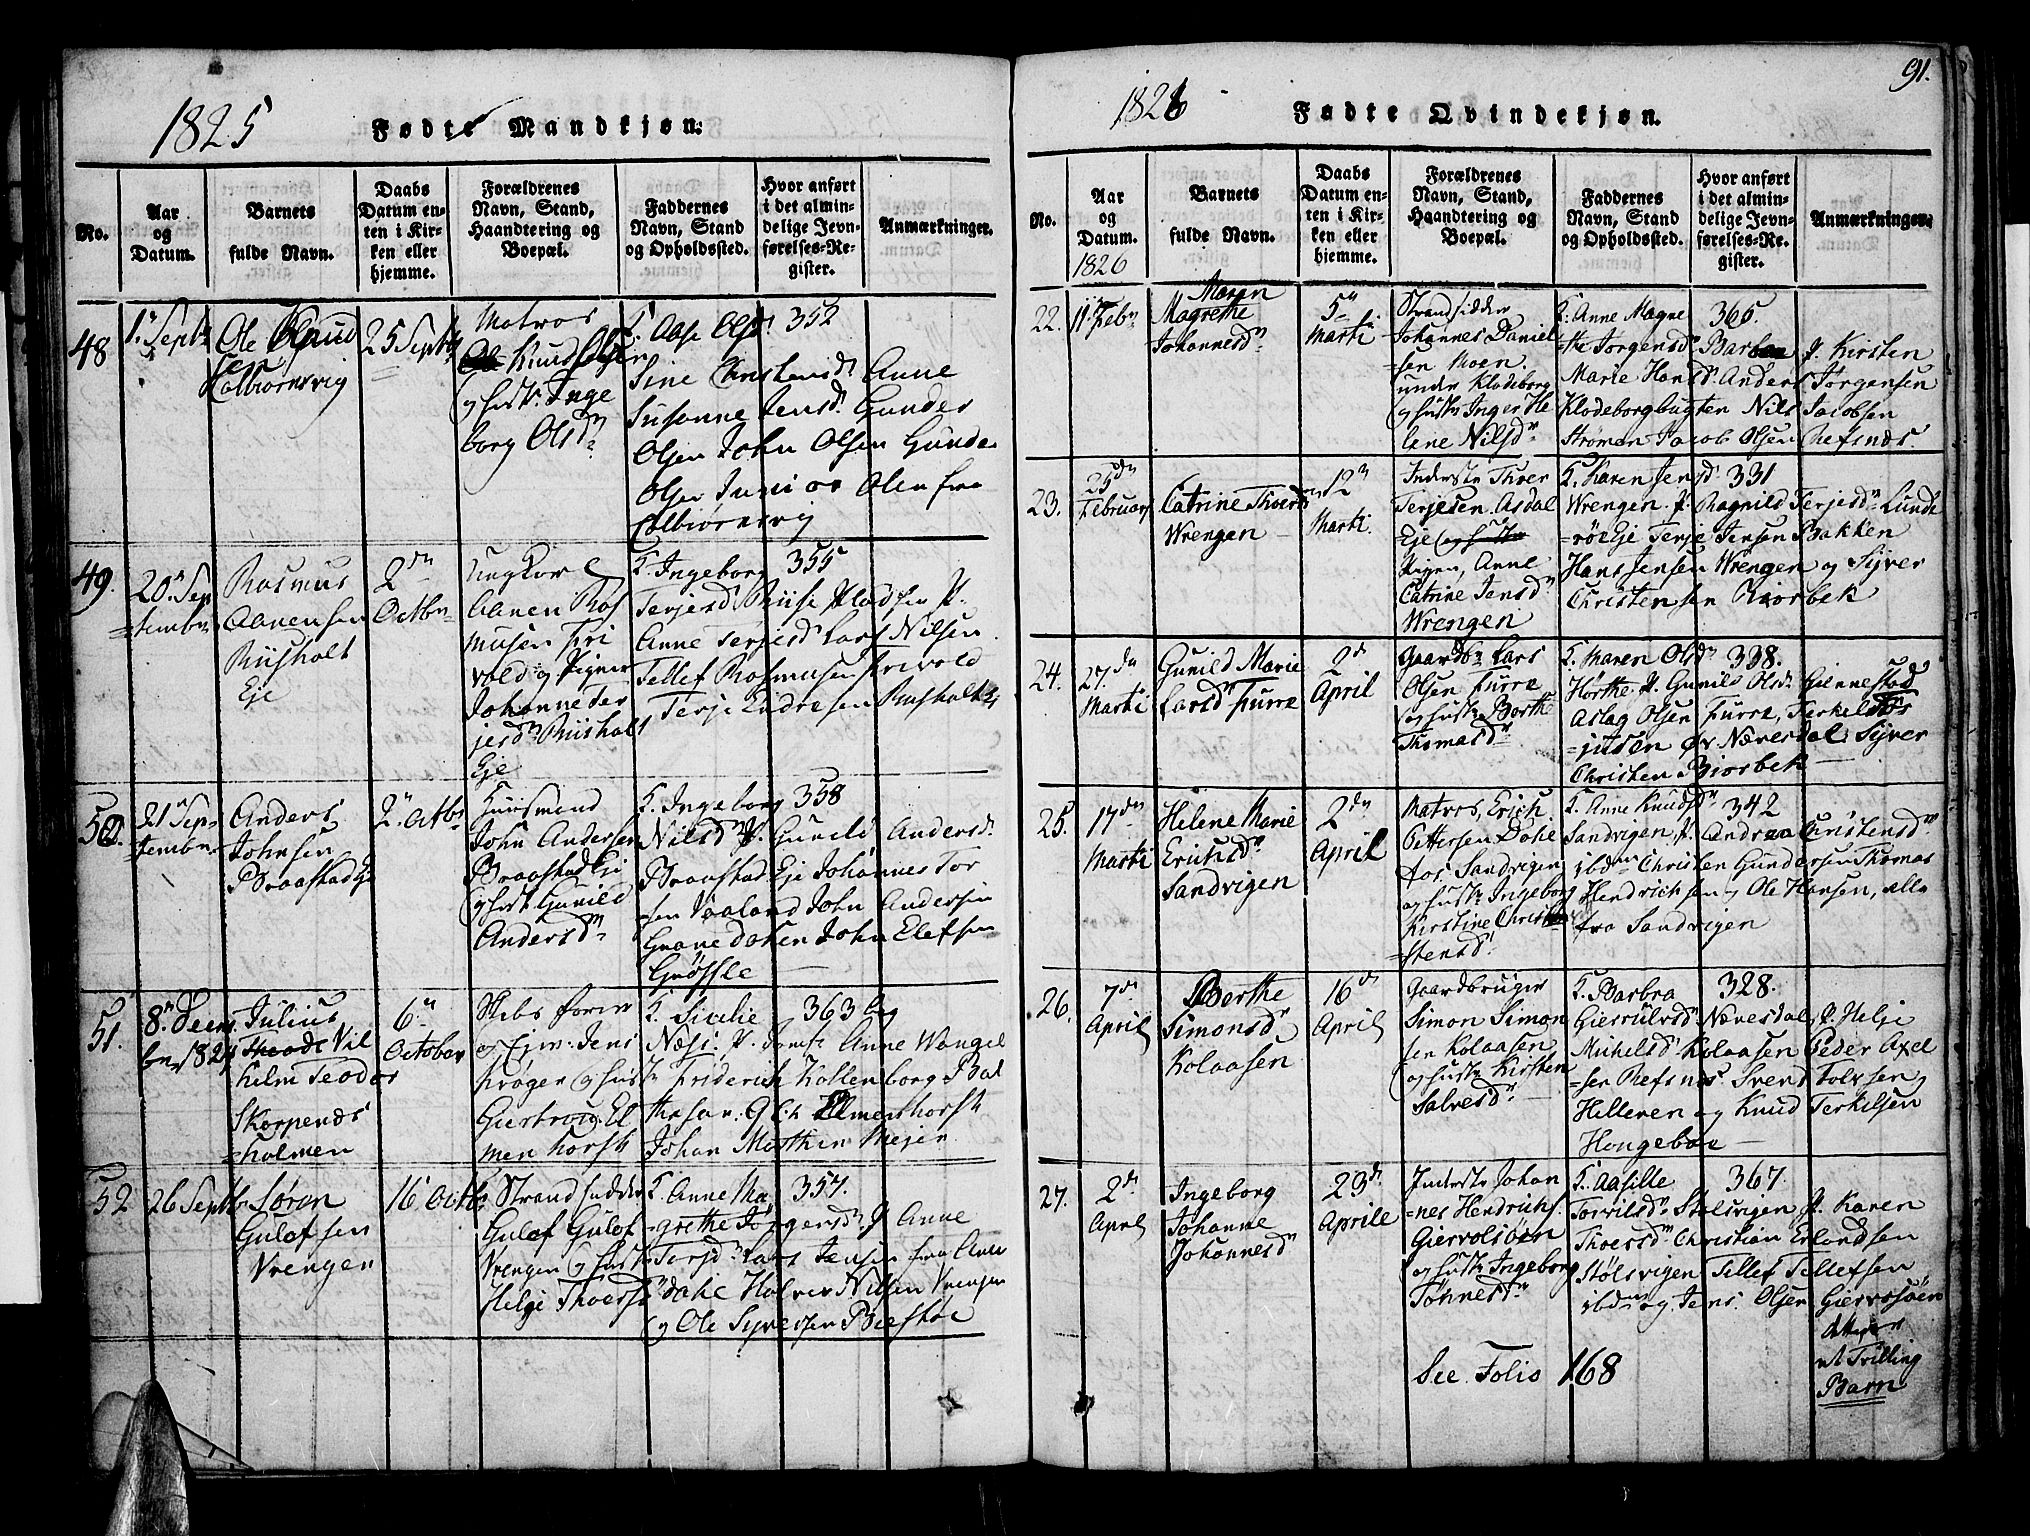 1825 Fødte Mandkjøn:
No.
Aar og Datum.
Barnets fulde Navn.
Daabs Datum enten i Kirken eller hjemme.
Forældrenes Navn, Stand, Haandtering og Boepæl.
Faddernes Navn, Stand og Opholdssted.
Hvor anført i det almindelige Jevnførelses-Register.
Anmærkninger.
48
1n Septbr
Ole Knud
sen
Colbiörnsvig
25 Septbr
Matros
Knud Olsen
og hustr. Inge
borg Olsdn
F. Aase Olsd 352
Sine Christensd Anne
Susanne Jensd. Gunder
Olsen John Olsen Gunder
Olsen
Colbiörnsvig
49.
20n Sep
=tembr
Rasmus
Aanensen
Riisholt
Eje
2den
Octbr
Ungkarl
Aanen Ras
musen Fri
vold og Pigen
Johanne Ter
jesdn Riisholt
Eje
F. Ingeborg 355
Terjesd Riise Pladsen P.
Anne Terjesd Lars Nilsen
Tellef Rasmusen Frivold
Terje Endresen Riisholt
50.
21n Sep
=tembr
Anders
Johnsen
Braastad Eje
2n Octbr
Huusmand
John Andersen
Braastad Eje
og hust. Gunild
Andersdn
F. Ingeborg 358
Nilsdn P. Gunild Andersd.
Braastad Eje Johannes Tor
sen Vaaland John Andersen
Granedalen John Elefsen
Grøssle
51.
8n Decem
br 1824
Julius
Vil
helm Teodor
Skarpenæs
=holmen
6n
October
Skibsfører
og Ejer Jens
Krøger og hust.
Giertrud El
menhorst
F. Sicilie 363
Næs. P. Jomfr Anne Wangel
Friderich Kallenborg
Elmenhorst
Johan Mathias Mejer
52
26 Septbr
Søren
Gulofsen
Vrengen
16 Octbr
Strandsidder
Gulof Gulofs
Vrengen og hust
Helge Thoersd
F. Anne Ma 357.
=grethe Jørgensd. P Anne
Tersdn Lars Jensen fra Aren
dahl Halvor Nilsen Vrengen
og Ole Syversen
91.
1826 Fødte Qvindekjøn.
No.
Aar og Datum. 1826
Barnets fulde Navn.
Daabs Datum enten i Kirken eller hjemme.
Forældrenes Navn, Stand, Haandtering og Boepæl.
Faddernes Navn, Stand og Opholdssted.
Hvor anført i det almindelige Jevnførelses-Register.
Anmærkninger.
22.
11 Febr
Maren
Magrethe
Johannesdn
5n
Marti
Strandsidder
Johannes Daniel
=sen Moen
under Klodeborg
og hustr Inger He
lene Nilsdn
F. Anne Magre 365.
=the Jørgensd Barboe P. Kirsten
Marie Hansd. Anders Jørgensen
Klodeborgbugten Nils Jacobsen
Strømen Jacob Olsen Refsnes.
23.
25dn
Februar
Catrine Thoersdn
Wrengen
12n
Marti.
Inderste Thoer
Terjesen Asdal
Eje
Pigen, Anne
Catrine Jensdn
Wrengen
F. Karen Jensd 331
Wrengen. P. Ragnild Terjesdn Lunde
=røe Eje Terje Jensen Bakken
Hans Jensen Wrengen og Syver
Christensen Biorbek
24.
27dn
Marti
Gunild Marie
Larsd Furre
2d
April
Gaardbr Lars
Olsen Furre
og hustr Berthe
Thomasdn
F. Maren Olsdn 338.
Hørthe. P. Gunild Olsd. Giennestad
Aslag Olsen Furre, Terkel
=julsen Øv Næresdal Syver
Christen Biorbek
25.
17dn
Marti
Helene Marie
Erichsdn
Sandvigen
2dn
April
Matros, Erich
Pettersen Dahl
fos. Sandvigen
og hustr Ingeborg
Kirstine Chri
=stensd.
F. Anne Knudsdn 342
Sandvigen. P. Andrea Christensdn
ibdm Christen Gundersen Thomas
Hendrichsen og Ole Hansen, alle
fra Sandvigen
26.
7dn
April
Berthe
Simonsdn
Kolaasen
16dn
April
Gaardbruger
Simon Simon
sen Kolaasen
og hustr Kirsten
Salvesdn
F. Barbra 328.
Giervulvsd Næresdal, P. Helje
Michelsd Kolaasen Peder Axel
=sen Refsnes Svend Tolvsen
Helleren og Knud Terkilsen
Hougeboe
27.
2dn
April
Ingeborg
Johanne
Johannesdn
23dn
Aprile
Inderste Johan
=nes Hendrichs.
Giervolsøen
og hustr Ingeborg
Tønnesdn
F. Aasille 367.
Torvilsdn Stølsvigen P. Karen
Thoersdn Christian Erlandsen
Stølsvigen Tellef Tellefsen
ibdm og Jens Olsen Giervolsøen
et Trilling
Barn
See Folio 168